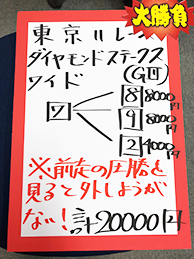 大勝負
東京11レース
ダイヤモンドステークス
ワイド (GⅢ)
8 8000円
9 8000円
2 4000円
※前走の圧勝を
見ると外しようが
ない！計20000円